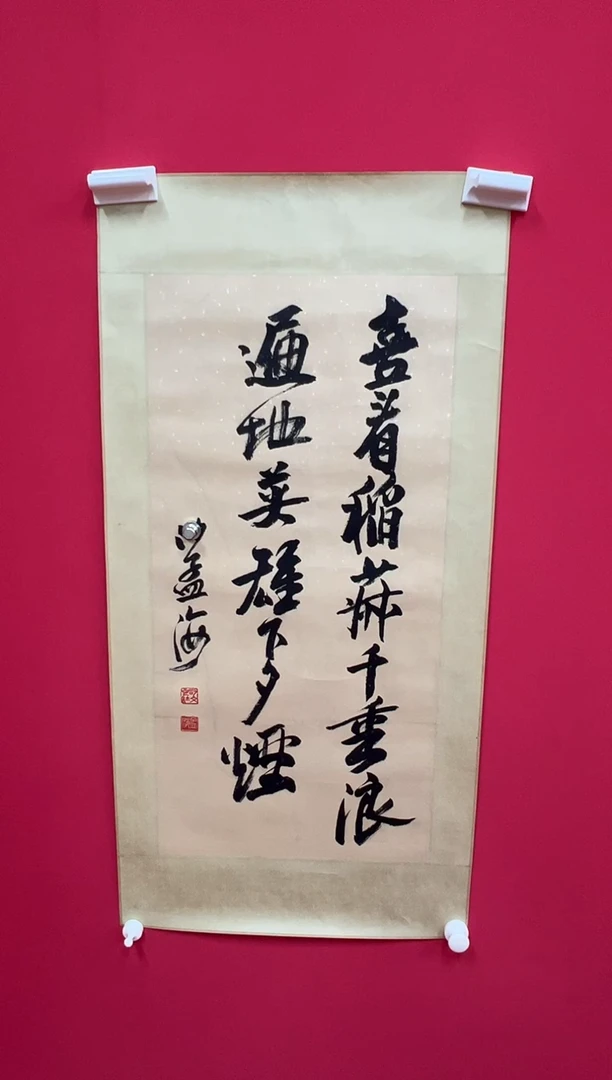 喜看稻菽千重浪
遍地英雄下夕煙
沙孟海